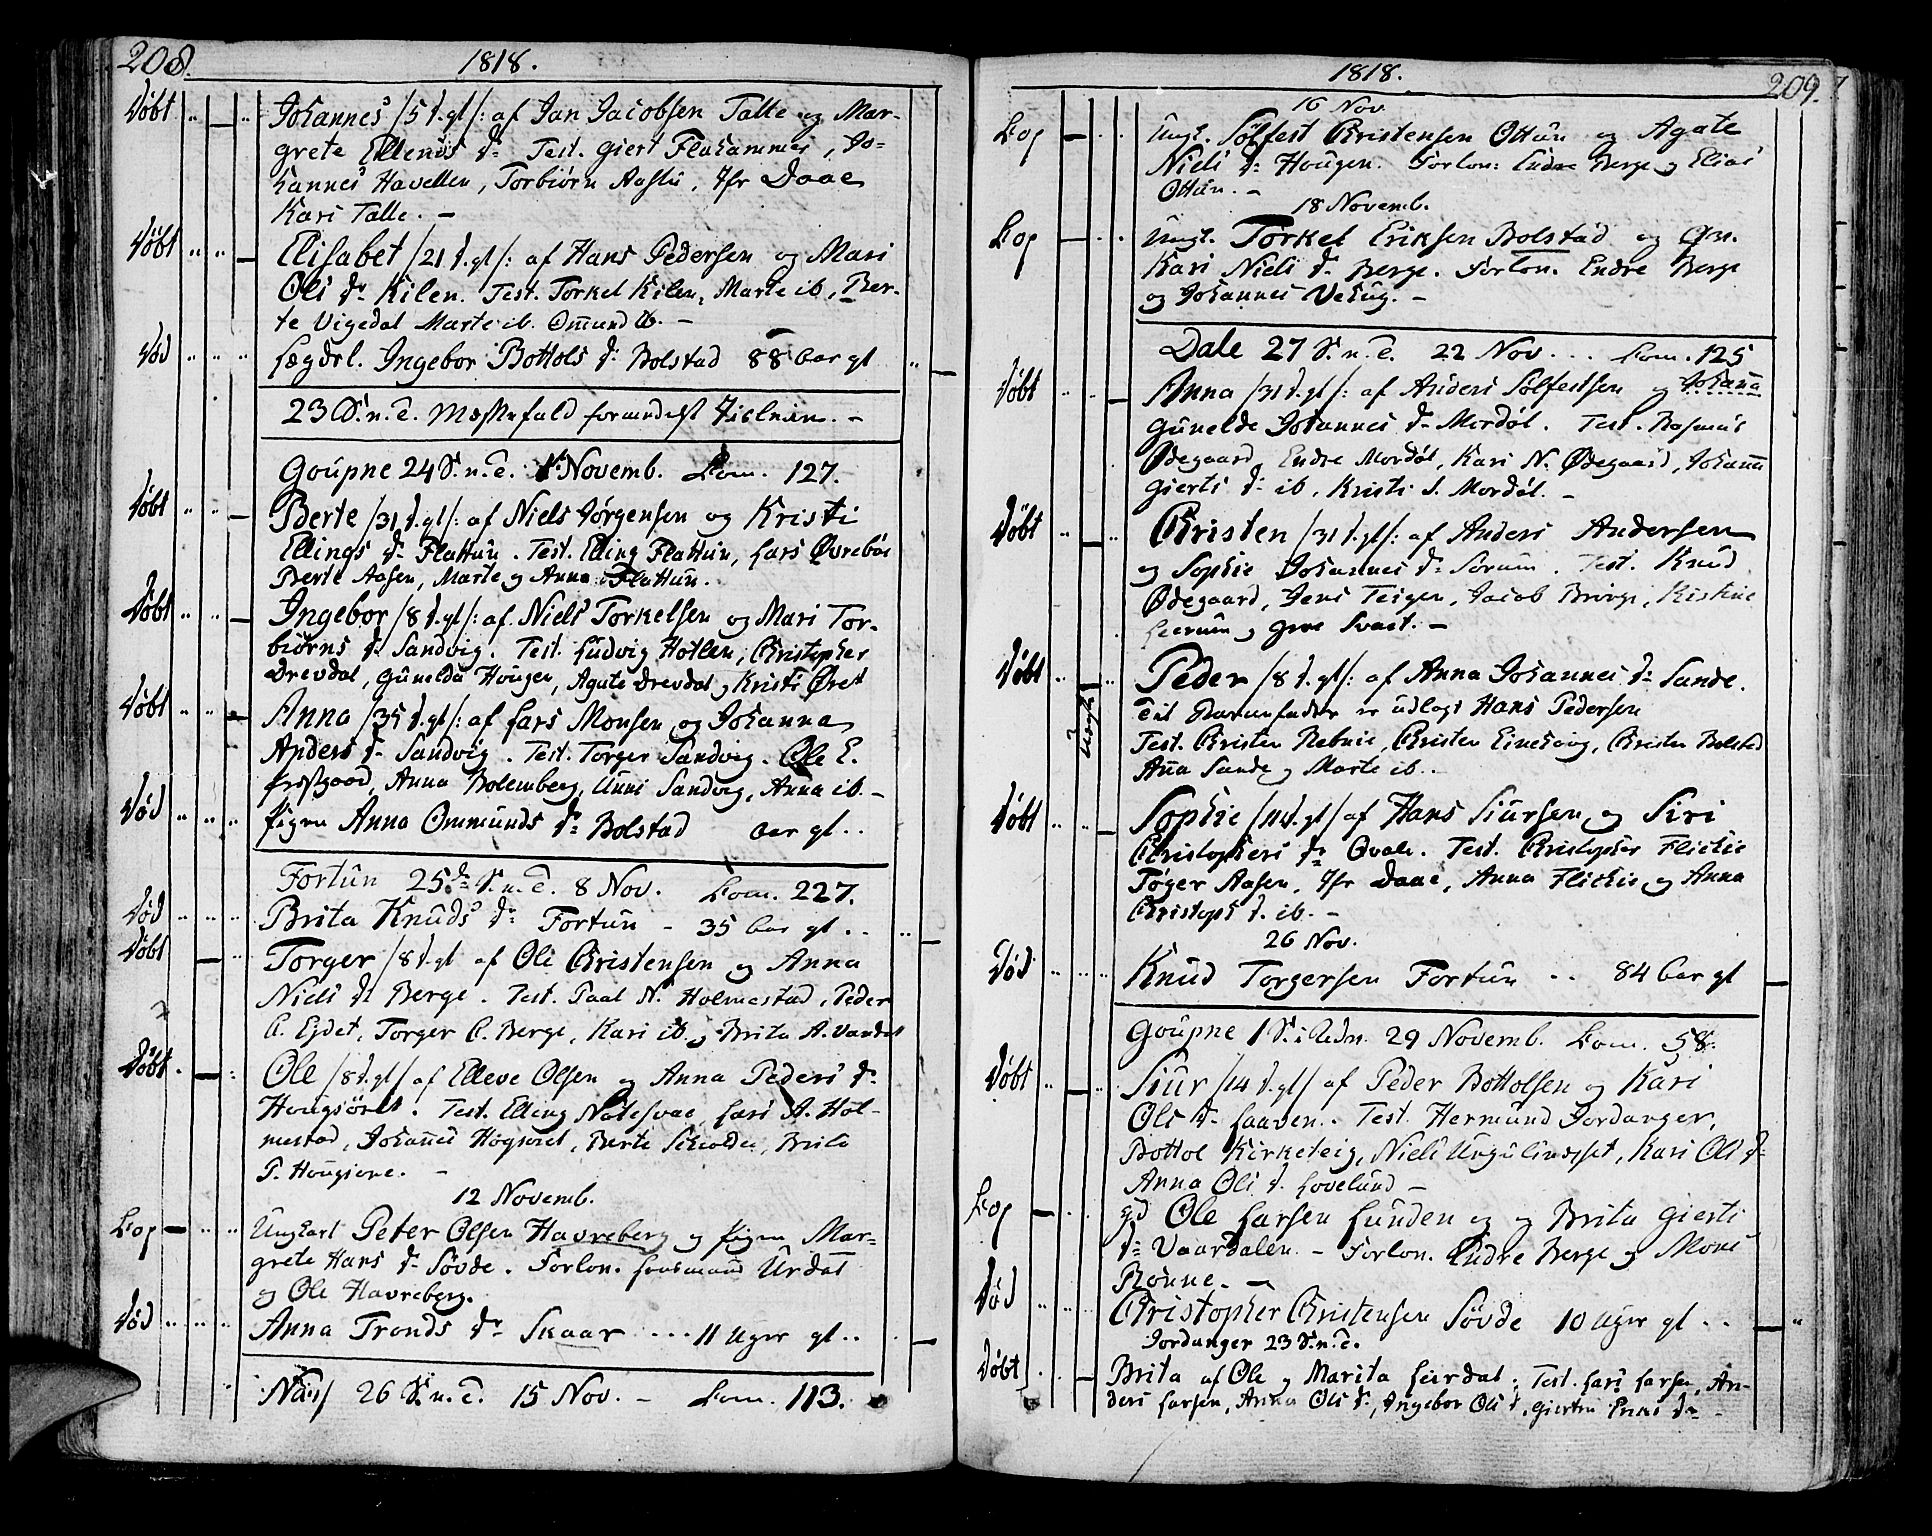 208.
1818.
Døbt Johannes /5 d. gl/: af Jan Jacobsen Talle og Mar-
grete Ellends d: Test. Giert Flahammer, Jo-
hannes Havellen, Torbiørn Aasen, Jfr Daae
Kari Talle. –
Døbt Elisabet /21 d. gl/: af Hans Pedersen og Mari
Ols d: Kilen. Test. Torkel Kilen, Marte ib, Ber-
te Vigedal Marte ib. Omund ib. –
Død Lægdel. Ingebor Bottols d: Bolstad 88 Aar gl
23 S. n. T. Messefald formedelst
Goupne 24 S. n. T. 1 Novemb. Com. 127.
Døbt Berte /31 d. gl/: af Niels Jørgensen og Kristi
Ellings d: Flattun. Test. Elling Flattun, Lars Øvrebøe
Berte Aasen, Marte og Anna Flattun.
Døbt Ingebor /8 d. gl/: af Niels Torkelsen og Mari Tor-
biørns d: Sandvig. Test. Ludvig Hotlen, Christopher
Drevdal, Gunelda Hougen, Agate Drevdal og Kristi Øret
Døbt Anna /35 d. gl/: af Lars Monsen og Johanna
Anders d: Sandvig. Test. Torger Sandvig. Ole E.
Anna Bolemberg, Unni Sandvig, Anna ib. –
Død Pigen Anna Ommunds d: Bolstad Aar gl..
Fortun 25de S. n. T. 8 Nov. Com. 227.
Død Brita Knuds d: Fortun – 35 Aar gl..
Døbt Torger /8 d. gl af Ole Christensen og Anna
Niels d: Berge. Test. Paal N. Holmestad, Peder
O. Ejdet, Torger O. Berge, Kari ib og Brita A. Vardal
Døbt Ole /8 d. gl/ af Elleve Olsen og Anna Peders d:
Hougsøret. Test. Elling Natesvae, Lars A. Hol-
mestad, Johannes Høgsøret, Berte Skiolden, Brite
P. Hougsøre. –
12 Novemb.
Cop Ungkarl Peter Olsen Havreberg og Pigen Mar-
grete Hans d: Søvde. Forlov. Lensmand Urdal
og Ole Havreberg.
Død Anna Tronds d: Skaar ... 11 Uger gl..
Næs 26 S. n. T. 15 Nov. – Com. 113.
1818.
209.
16 Nov.
Cop Ungk. Sølfest Christensen Ottun og Agate
Niels d: Hougen. Forlov: Endre Berge og Elias
Ottun. –
18 Novemb.
Cop Ungk. Torkel Eriksen Bolstad og
Kari Niels d: Berge. Forlov. Endre Berge
og Johannes –
Dale 27 S. n. T. 22 Nov... Com. 125
Døbt Anna /31 d. gl/: af Anders Sølfestsen og Johanna
Gunelde Johannes d: Mordøl. Test. Rasmus
Ødegaard, Endre Mordøl, Kari N. Ødegaard, Johanna
Gierts d: ib, Kristi S. Mordøl. –
Døbt Christen /31 d. gl/: af Anders Andersen
og Sophie Johannes d: Sørum. Test. Knud
Ødegaard, Jens Teigen, Jacob Bringe, Kistine
Leerum og Groe Svast. –
Døbt Peder /8 d. gl/: af Anna Johannes d: Sande.
Til Barnefader er udlagt Hans Pedersen
Test. Christen Rebnie, Christen Einesking, Christen Bolstad
Anna Sande og Marte ib.
Uægte
Døbt Sophie /14 d. gl/ af Hans Siursen og Siri
Christophers d: Qvale. Test. Christopher Flickie
Tøger Aasen, Jfr Daae, Anna Flickie og Anna
Christophs d. ib. –
26 Nov.
Død Knud Torgersen Fortun .. 84 Aar gl
Goupne 1 S. i Adv. 29 Novemb. Com. 58.
Døbt Siur /14 d. gl/ af Peder Bottolsen og Kari
Ols d: Laaven. Test. Hermund Jordanger,
Bottol Kirketeig, Niels Ungulinesset, Kari Ols d:
Anna Ols d. Lovelund –
Cop Ole Larsen Lunden og og Brita Gierts
d: Vaardalen – Forlov. Endre Berge og Mons
Rønne. –
Død Christopher Christensen Søvde 10 Uger gl..
Jordanger 23 S. n. T.
Døbt Brita af Ole og Marita Leirdal: Test. Lars Larsen, An-
ders Larsen, Anna Ols d:, Ingebor Ols d,